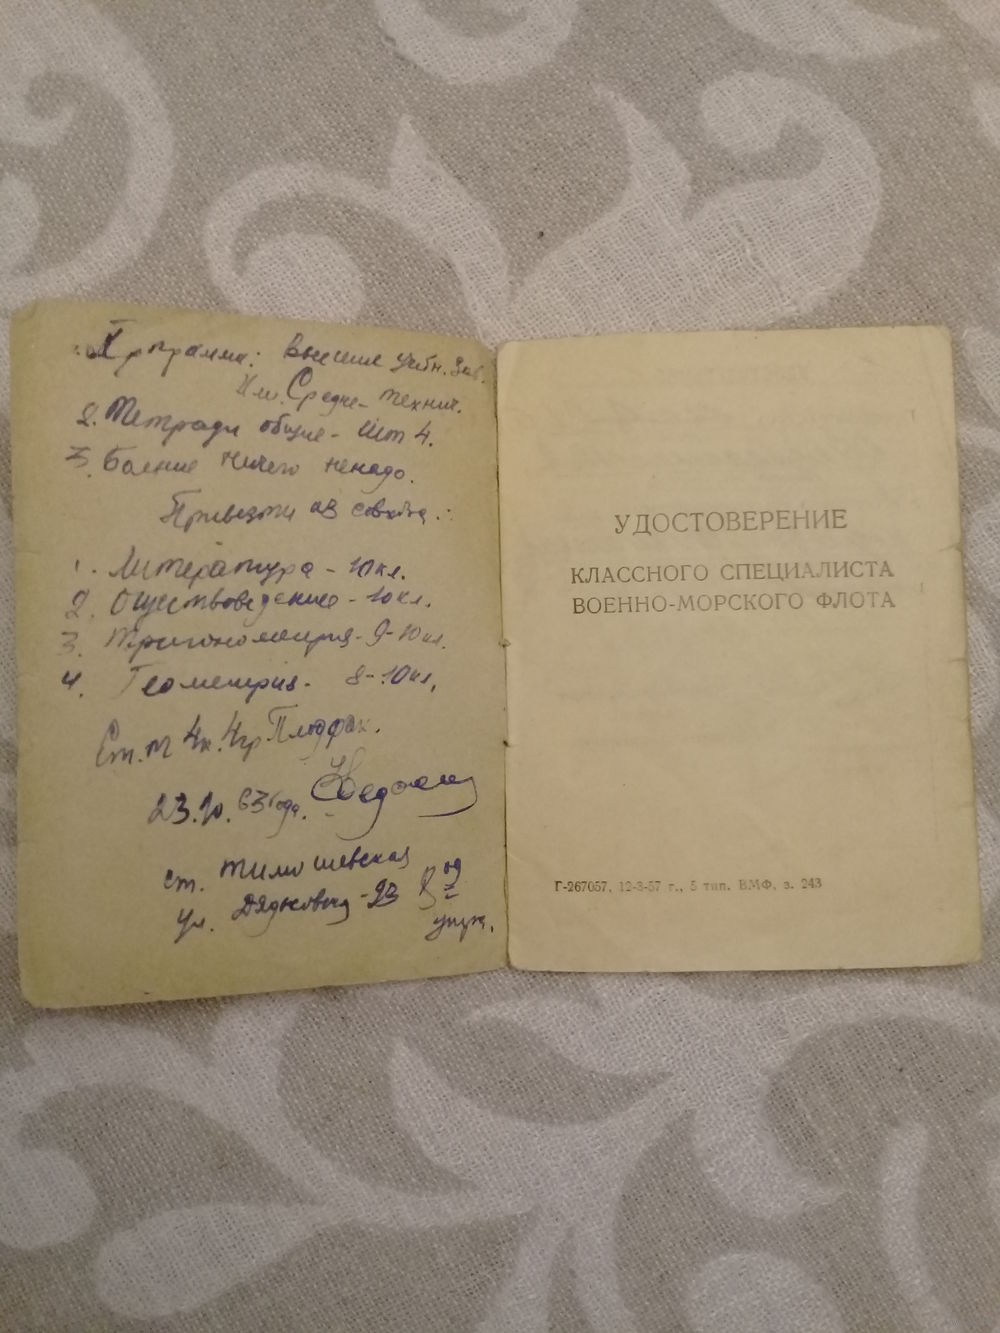 Программа: Высшие учебн. Зав.
Или Средне-технич.
2. Тетради общие - шт 4.
3. Болние ничего ненадо.
Привезти из совхоза:
1. Литература - 10 кл.
2. Обществоведение - 10 кл.
3. Тригонометрия - 9-10 кл.
4. Геометрия - 8-10 кл.
Ст. т 4к. 4гр Плодфак.
23.10.63 года.
ст. Тимошевская
ул. - 93
УДОСТОВЕРЕНИЕ
КЛАССНОГО СПЕЦИАЛИСТА
ВОЕННО-МОРСКОГО ФЛОТА
Г-267057, 12-3-57 г., 5 тип. ВМФ, з. 243